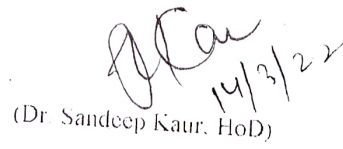 14/3/22
(Dr. Sandeep Kaur, HoD)